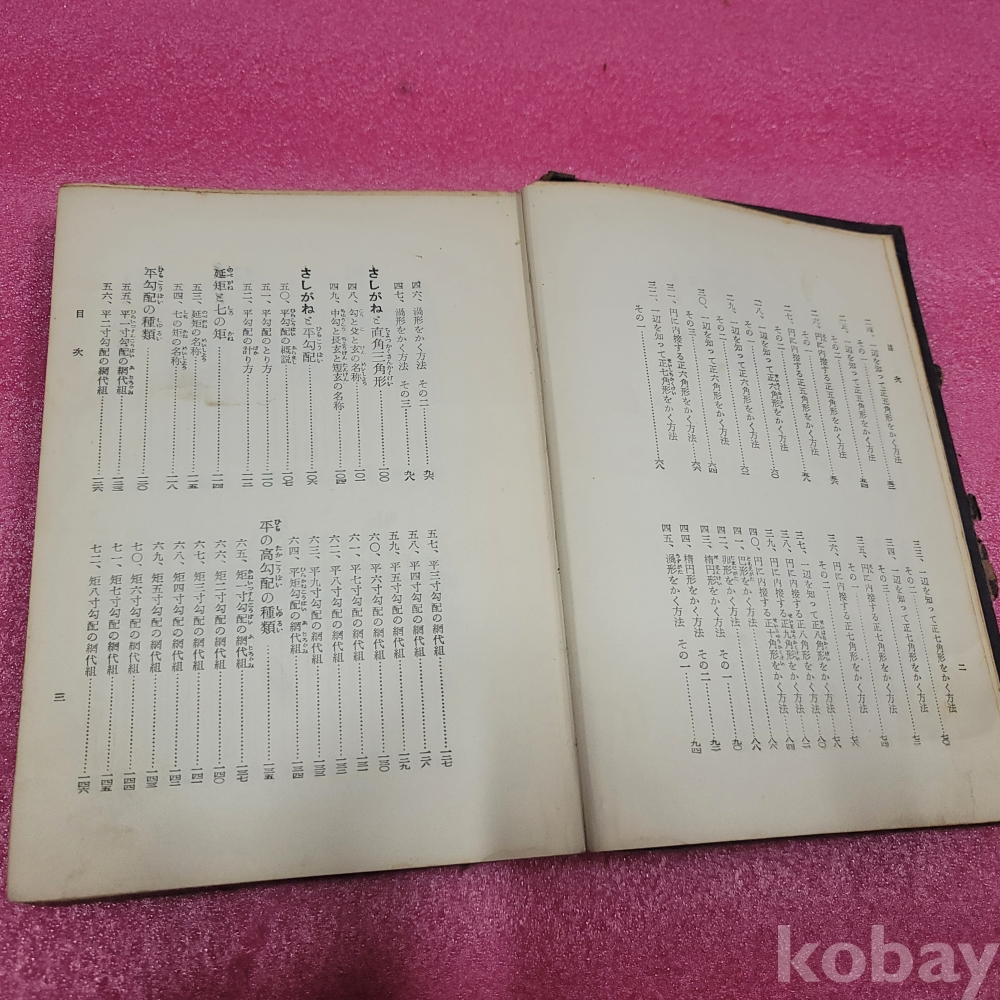 目次
二
二四、一辺を知って正五角形をかく方法
その一……五二
二五、一辺を知って正五角形をかく方法
その二……五四
二六、円に内接する正五角形をかく方法
その一……五六
二七、円に内接する正五角形をかく方法
その二……五八
二八、一辺を知って正六角形をかく方法
その一……六〇
二九、一辺を知って正六角形をかく方法
その二……六二
三〇、一辺を知って正六角形をかく方法
その三……六四
三一、円に内接する正六角形をかく方法……六六
三二、一辺を知って正七角形をかく方法
その一……六八
三三、一辺を知って正七角形をかく方法
その二……七〇
三四、一辺を知って正七角形をかく方法
その三……七二
三五、円に内接する正七角形をかく方法
その一……七四
三六、円に内接する正七角形をかく方法
その二……七六
三七、一辺を知って正八角形をかく方法……八〇
三八、円に内接する正八角形をかく方法……八二
三九、円に内接する正九角形をかく方法……八四
四〇、円に内接する正十角形をかく方法……八六
四一、巴形をかく方法……八八
四二、卵形をかく方法 その一……九〇
四三、楕円形をかく方法 その二……九二
四四、楕円形をかく方法
四五、渦形をかく方法 その一……九四
四六、渦形をかく方法 その二……九六
四七、渦形をかく方法 その三……九八
さしがねと直角三角形……一〇〇
四八、勾と殳と玄の名称……一〇二
四九、中勾と長玄と短玄の名称……一〇四
さしがねと平勾配……一〇六
五〇、平勾配の概説……一〇七
五一、平勾配のとり方……一一〇
五二、平勾配の計り方……一一二
延矩と七の矩……一一四
五三、延矩の名称……一一五
五四、七の矩の名称……一一八
平勾配の種類……一二〇
五五、平一寸勾配の網代組……一二三
五六、平二寸勾配の網代組……一二六
五七、平三寸勾配の網代組……一二七
五八、平四寸勾配の網代組……一二八
五九、平五寸勾配の網代組……一二九
六〇、平六寸勾配の網代組……一三〇
六一、平七寸勾配の網代組……一三一
六二、平八寸勾配の網代組……一三二
六三、平九寸勾配の網代組……一三三
六四、平矩勾配の網代組……一三四
平の高勾配の種類……一三五
六五、矩一寸勾配の網代組……一三七
六六、矩二寸勾配の網代組……一四〇
六七、矩三寸勾配の網代組……一四一
六八、矩四寸勾配の網代組……一四二
六九、矩五寸勾配の網代組……一四三
七〇、矩六寸勾配の網代組……一四四
七一、矩七寸勾配の網代組……一四五
七二、矩八寸勾配の網代組……一四六
目次
三
kobay